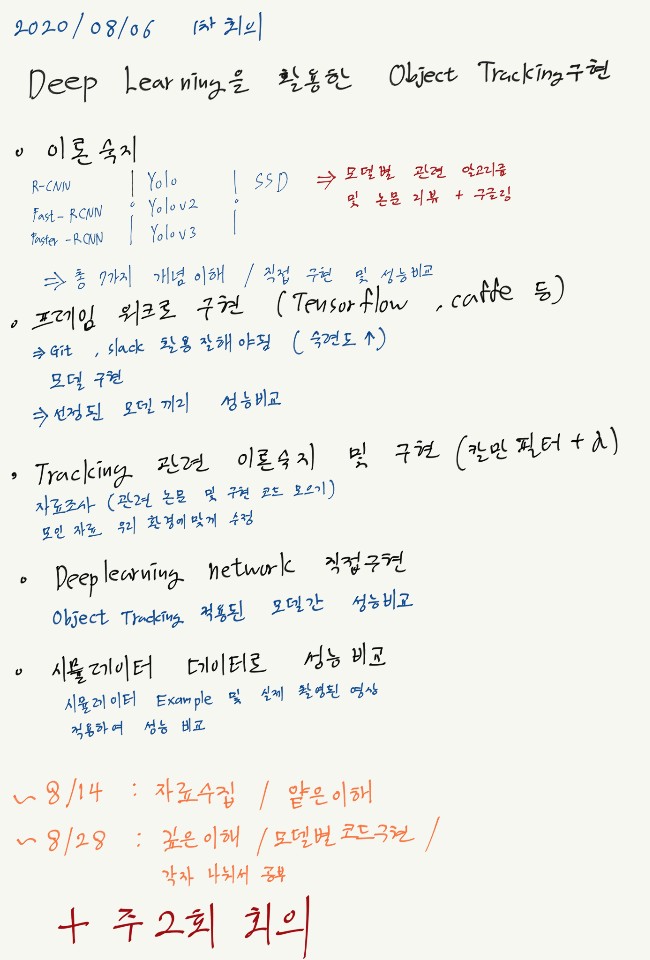 2020/08/06 1차 회의
Deep Learning을 활용한 Object Tracking구현
• 이론숙지
R-CNN | Yolo | SSD ⇒ 모델별 관련 알고리즘
Fast-RCNN Yolov2 및 논문 리뷰 + 구글링
Faster-RCNN | Yolov3 |
⇒ 총 7가지 개념이해 / 직접 구현 및 성능비교
• 프레임 워크로 구현 (Tensorflow, caffe 등)
⇒ Git, slack 활용잘해야됨 (숙련도↑)
모델 구현
⇒ 선정된 모델끼리 성능비교
• Tracking 관련 이론숙지 및 구현 (칼만필터+α)
자료조사 (관련 논문 및 구현 코드 모으기)
모인 자료 우리 환경에맞게 수정
• Deeplearning network 직접구현
Object Tracking 적용된 모델간 성능비교
• 시뮬레이터 데이터로 성능비교
시뮬레이터 Example 및 실제 촬영된 영상
적용하여 성능 비교
~ 8/14 : 자료수집 / 얕은이해
~ 8/28 : 깊은이해 / 모델별코드구현 /
각자 나눠서 공부
+ 주2회 회의